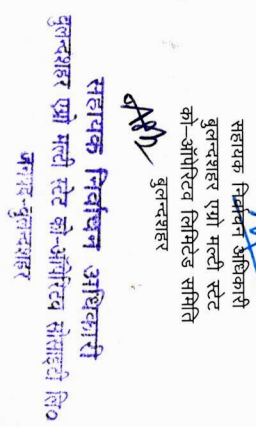 सहायक निर्वाचन अधिकारी
बुलन्दशहर एग्रो मल्टी स्टेट
को-ऑपरेटिव लिमिटेड समिति
बुलन्दशहर
सहायक निर्वाचन अधिकारी
बुलन्दशहर एग्रो मल्टी स्टेट को-ऑपरेटिव सोसाइटी लि०
जनपद-बुलन्दशहर